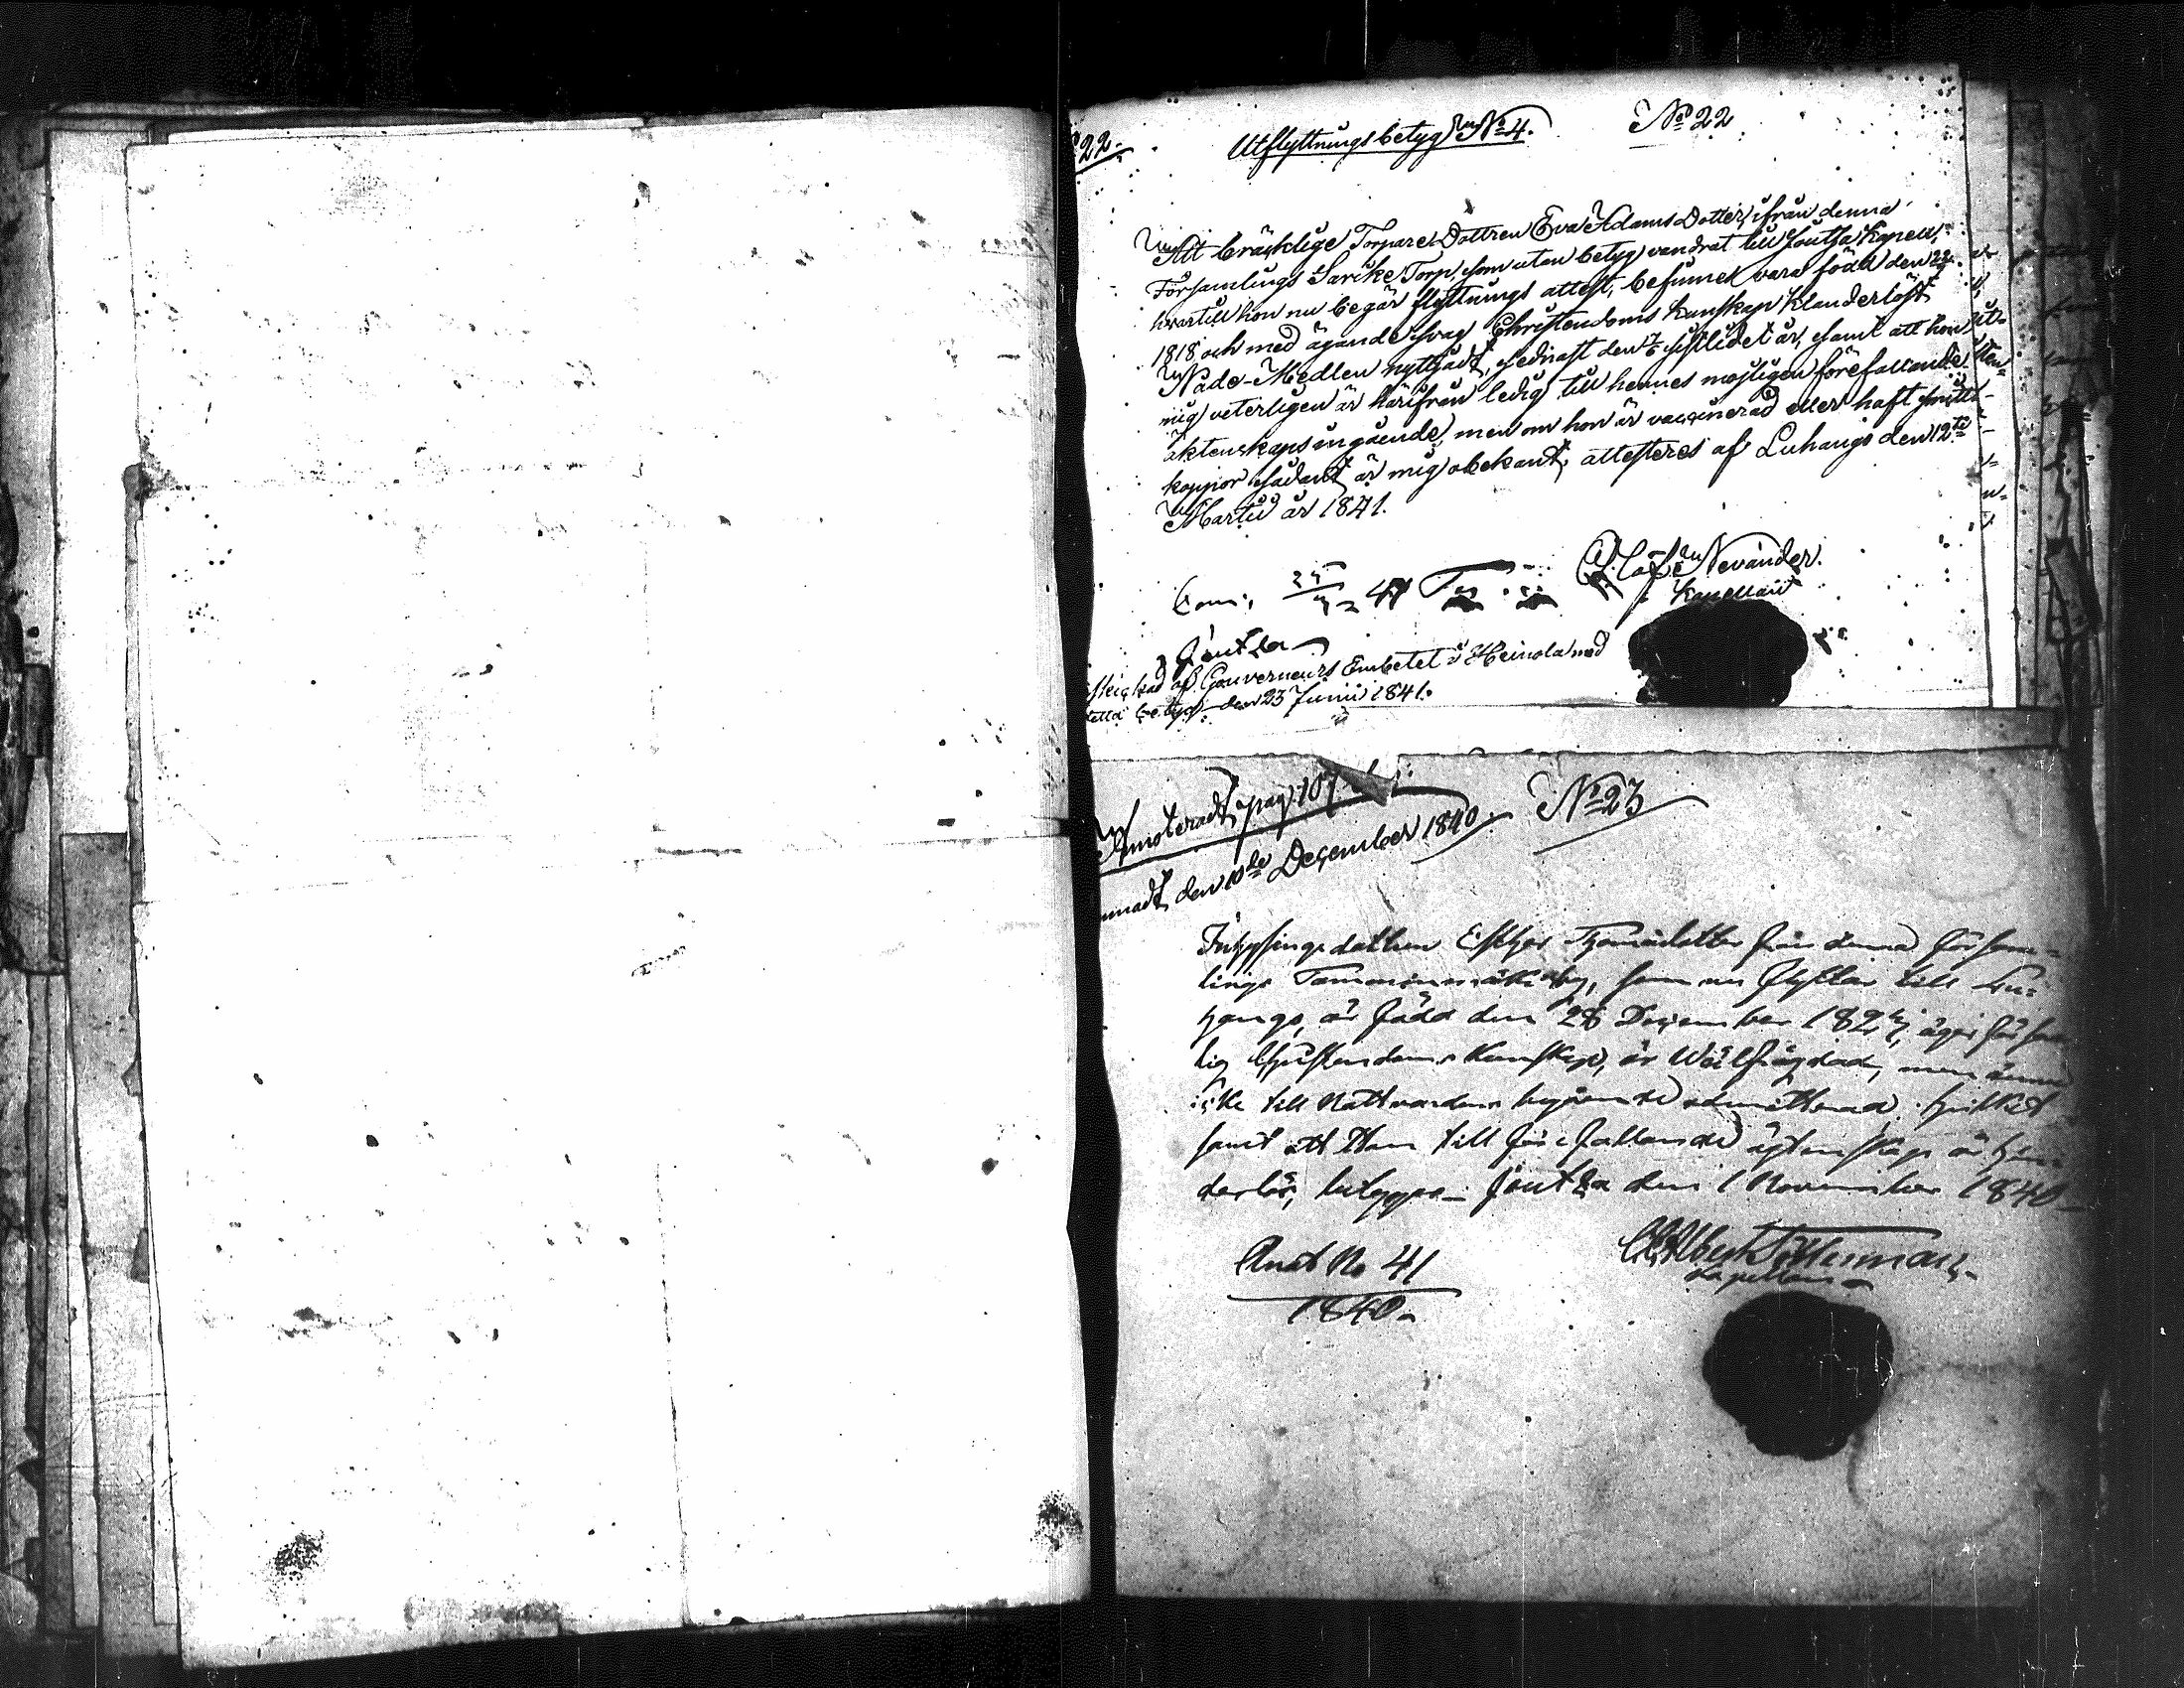 22.
Utflyttningsbetyg N:o 4.
N:o 22
Att bräcklige Torpare Dottren Eva Adams Dotter, ifrån denna
Församlings Sarike Torp, som utan betyg vandrat till Joutsa Kapell,
hvartill hon nu begär flyttnings attest, befunnen vara född den
1818, och med ägande svag Christendoms kunskap klanderlöst
Nåde-Medlen nyttjadt, sednast den sistlidet år, samt att hon
mig veterligen är härifrån ledig till hennes möjligen förefallande
äktenskaps ingående, men om hon är vaccinerad eller haft smitt-
koppor sådant är mig obekant, attesteres af Luhango den 12te
Martii år 1841.
Olof Nevander.
Kapellan
Joutsa
af Gouverneurs Embetet i Heinola med
detta betyg den 23 Junii 1841.
Annoteradt pag. 107
N:o 23
den 10de December 1840.
Inhysinge dottren Esther från denna försam-
lings by, som nu flyttar till Lu-
hango, är född den 28 December 182, äger för
lig Christendoms kunskap, är men ännu
icke till Nattvardens begående admitterad, hvilket
samt att Hon till förefallande ägtenskap är hin-
derlös, betygas Joutsa den 1 November 1840
Anat No 41
1840.
Kapellan